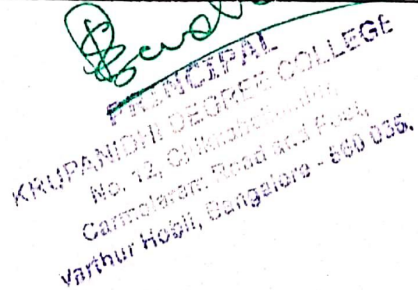 PRINCIPAL
KRUPANIDHI DEGREE COLLEGE
No. 12, Chikkabellandur
Carmelaram Road and Post,
Varthur Hobli, Bangalore - 560 035.